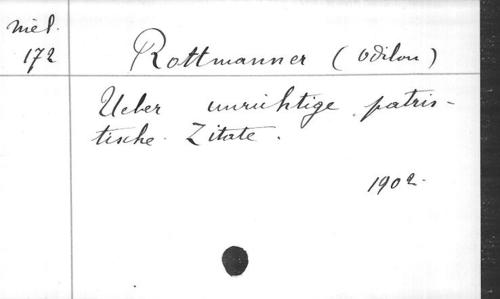 mél.
172
Rottmanner (Odilon)
Ueber unrichtige patris-
tische Zitate.
1902.